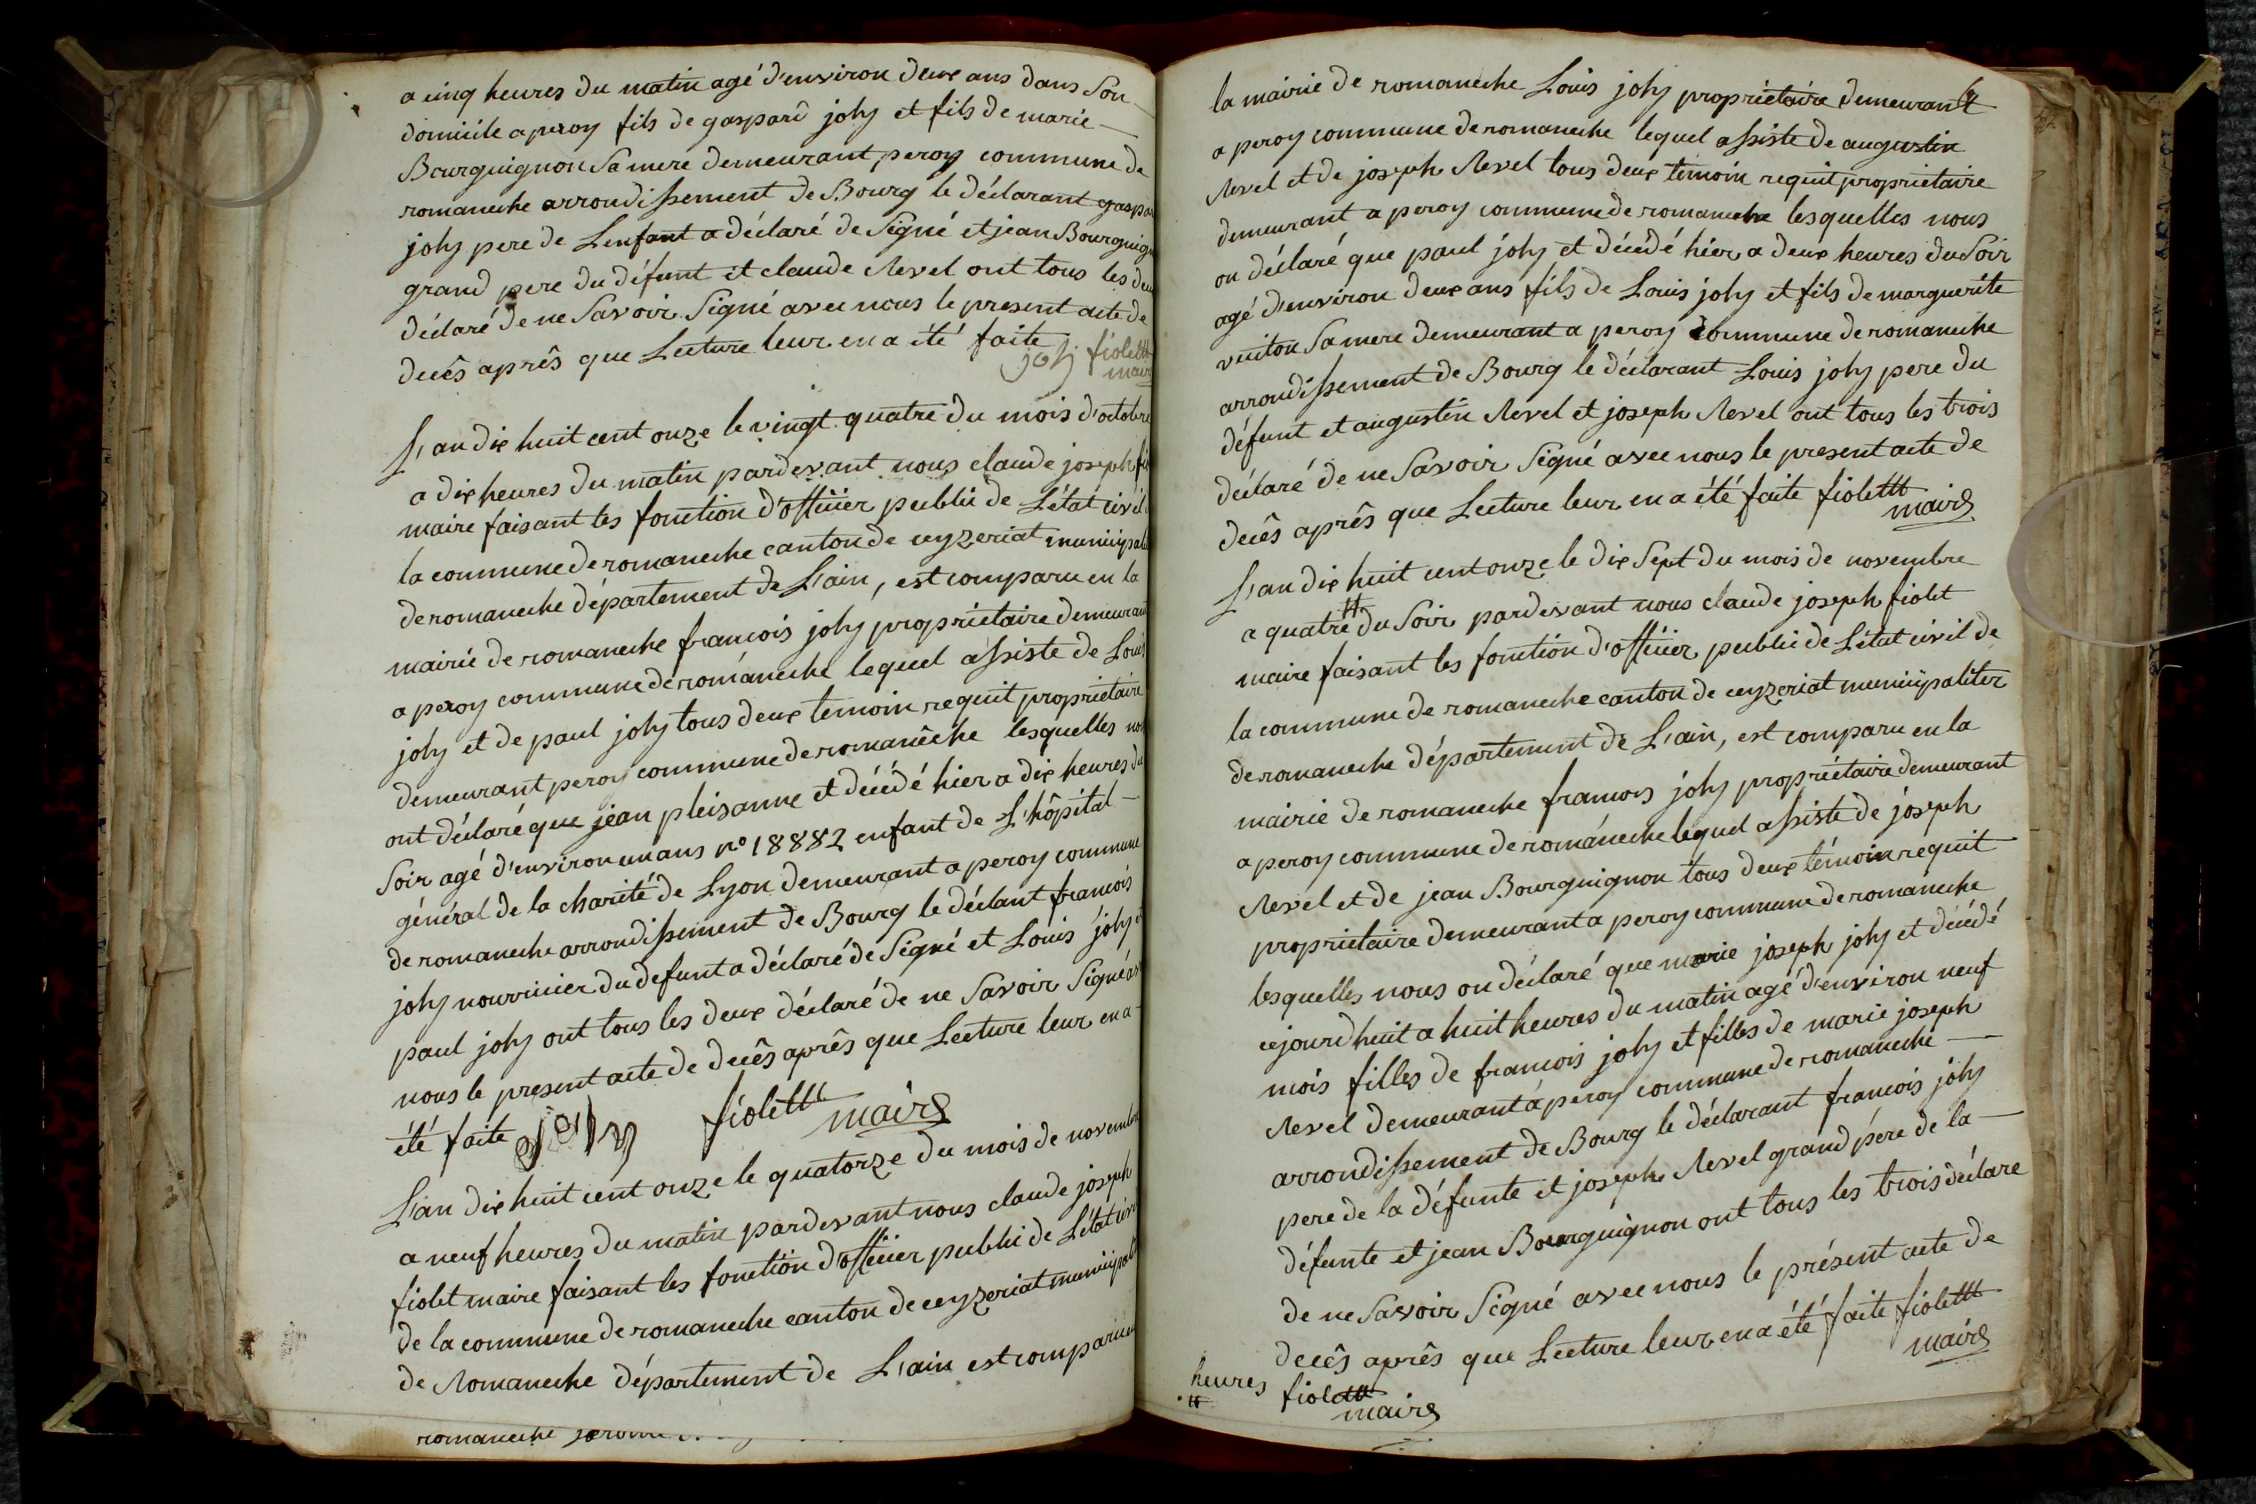 a cinq heures du matin agé d'environ deux ans dans son
domicile a peroy fils de gaspard joly et fils de marie
Bourguignon sa mere demeurant peroy commune de
romaneche arrondissement de Bourg le déclarant gaspa
joly pere de L'enfant a déclaré de signé et jean Bourguig
grand pere du défunt et claude Revel ont tous les deu
déclaré de ne savoir signé avec nous le present acte de
decês aprês que Lecture leur en a été faite
joly fiolettt
maire
L'an dix huit cent onze le vingt quatre du mois d'octobre
a dix heures du matin pardevant nous claude joseph fi
maire faisant les fonction d'officier public de L'état civil
la commune de romaneche canton de ceyzeriat municipal
de romaneche département de L'ain, est comparu en la
mairie de romaneche francois joly propriétaire demeurant
a peroy commune de romaneche lequel assiste de Louis
joly et de paul joly tous deux temoin requit proprietaire
demeurant peroy commune de romanêche lesquelles no
ont déclaré que jean pleisanne et décédé hier a dix heures du
soir agé d'environ un ans n° 18882 enfant de L'hôpital
général de la charité de Lyon demeurant a peroy commune
de romaneche arrondissement de Bourg le déclant francois
joly nourricier du defunt a déclaré de signé et Louis joly et
paul joly ont tous les deux déclaré de ne savoir signé av
nous le present acte de decês aprês que Lecture leur en a
été faite joly fiolettt
maire
L'an dix huit cent onze le quatorze du mois de novembre
a neuf heures du matin pardevant nous claude joseph
fiolet maire faisant les fonction d'officier public de L'état civi
de la commune de romaneche canton de ceyzeriat municipal
de Romaneche département de L'ain est comparu en
romaneche
la mairie de romaneche Louis joly proprietaire demeurant
a peroy commune de romaneche lequel assiste de augustin
Revel et de joseph Revel tous deux témoin requit proprietaire
demeurant a peroy commune de romaneche lesquelles nous
on déclaré que paul joly et décédé hier a deux heures du soir
agé d'environ deux ans fils de Louis joly et fils de marguerite
vuiton sa mere demeurant a peroy commune de romaneche
arrondissement de Bourg le déclarant Louis joly pere du
défunt et augustin Revel et joseph Revel ont tous les trois
déclaré de ne savoir signé avec nous le present acte de
decês aprês que Lecture leur en a été faite fiolettt
maire
L'an dix huit cent onze le dix sept du mois de novembre
a quatre # du soir pardevant nous claude joseph fiolet
maire faisant les fonction d'officier public de L'état civil de
la commune de romaneche canton de ceyzeriat municipaliter
de romaneche département de L'ain, est comparu en la
mairie de romaneche francois joly propriétaire demeurant
a peroy commune de romaneche lequel assiste de joseph
Revel et de jean Bourguignon tous deux témoin requit
proprietaire demeurant a peroy commune de romaneche
lesquelles nous on déclaré que marie joseph joly et décédé
cejourd'huit a huit heures du matin agé d'environ neuf
mois filles de francois joly et filles de marie joseph
Revel demeurant a peroy commune de romaneche
arrondissement de Bourg le déclarant francois joly
pere de la défunte et joseph Revel grand pére de la
défunte et jean Bourguignon ont tous les trois déclare
de ne savoir signé avec nous le présent acte de
decês aprês que Lecture leur en a été faite fiolettt
maire
heures fiolettt
# maire